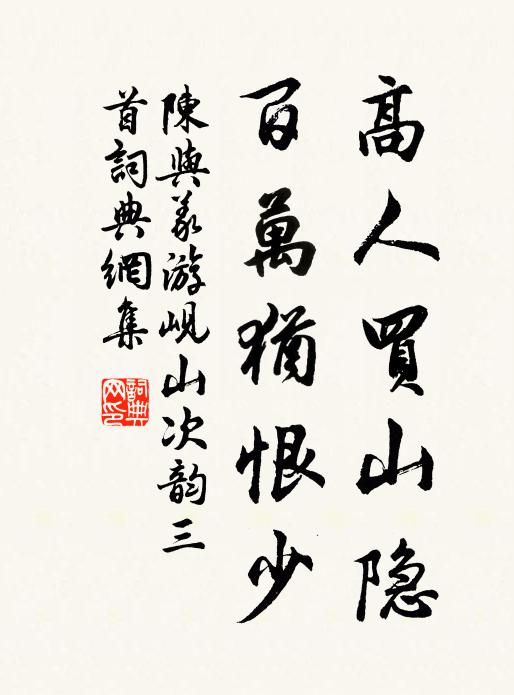 高人買山隐
百萬猶恨少
陳與义游峴山次韵三
首詞典網集
詞典网印